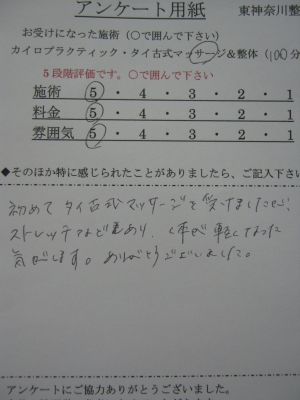 アンケート用紙
東神奈川整
お受けになった施術（〇で囲んで下さい）
カイロプラクティック・タイ古式マッサージ&整体（100分
５段階評価です。〇で囲んで下さい
施術 5 ・ 4 ・ 3 ・ 2 ・ 1
料金 5 ・ 4 ・ 3 ・ 2 ・ 1
雰囲気 5 ・ 4 ・ 3 ・ 2 ・ 1
◆そのほか特に感じられたことがありましたら、ご記入下さい
初めてタイ古式マッサージを受けましたが、
ストレッチなどもあり、体が軽くなった
気がします。ありがとうございました。
アンケートにご協力ありがとうございました。